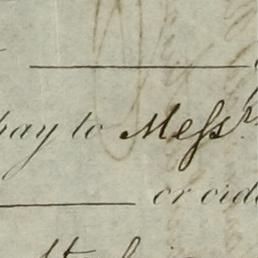 pay to Messrs
or orde